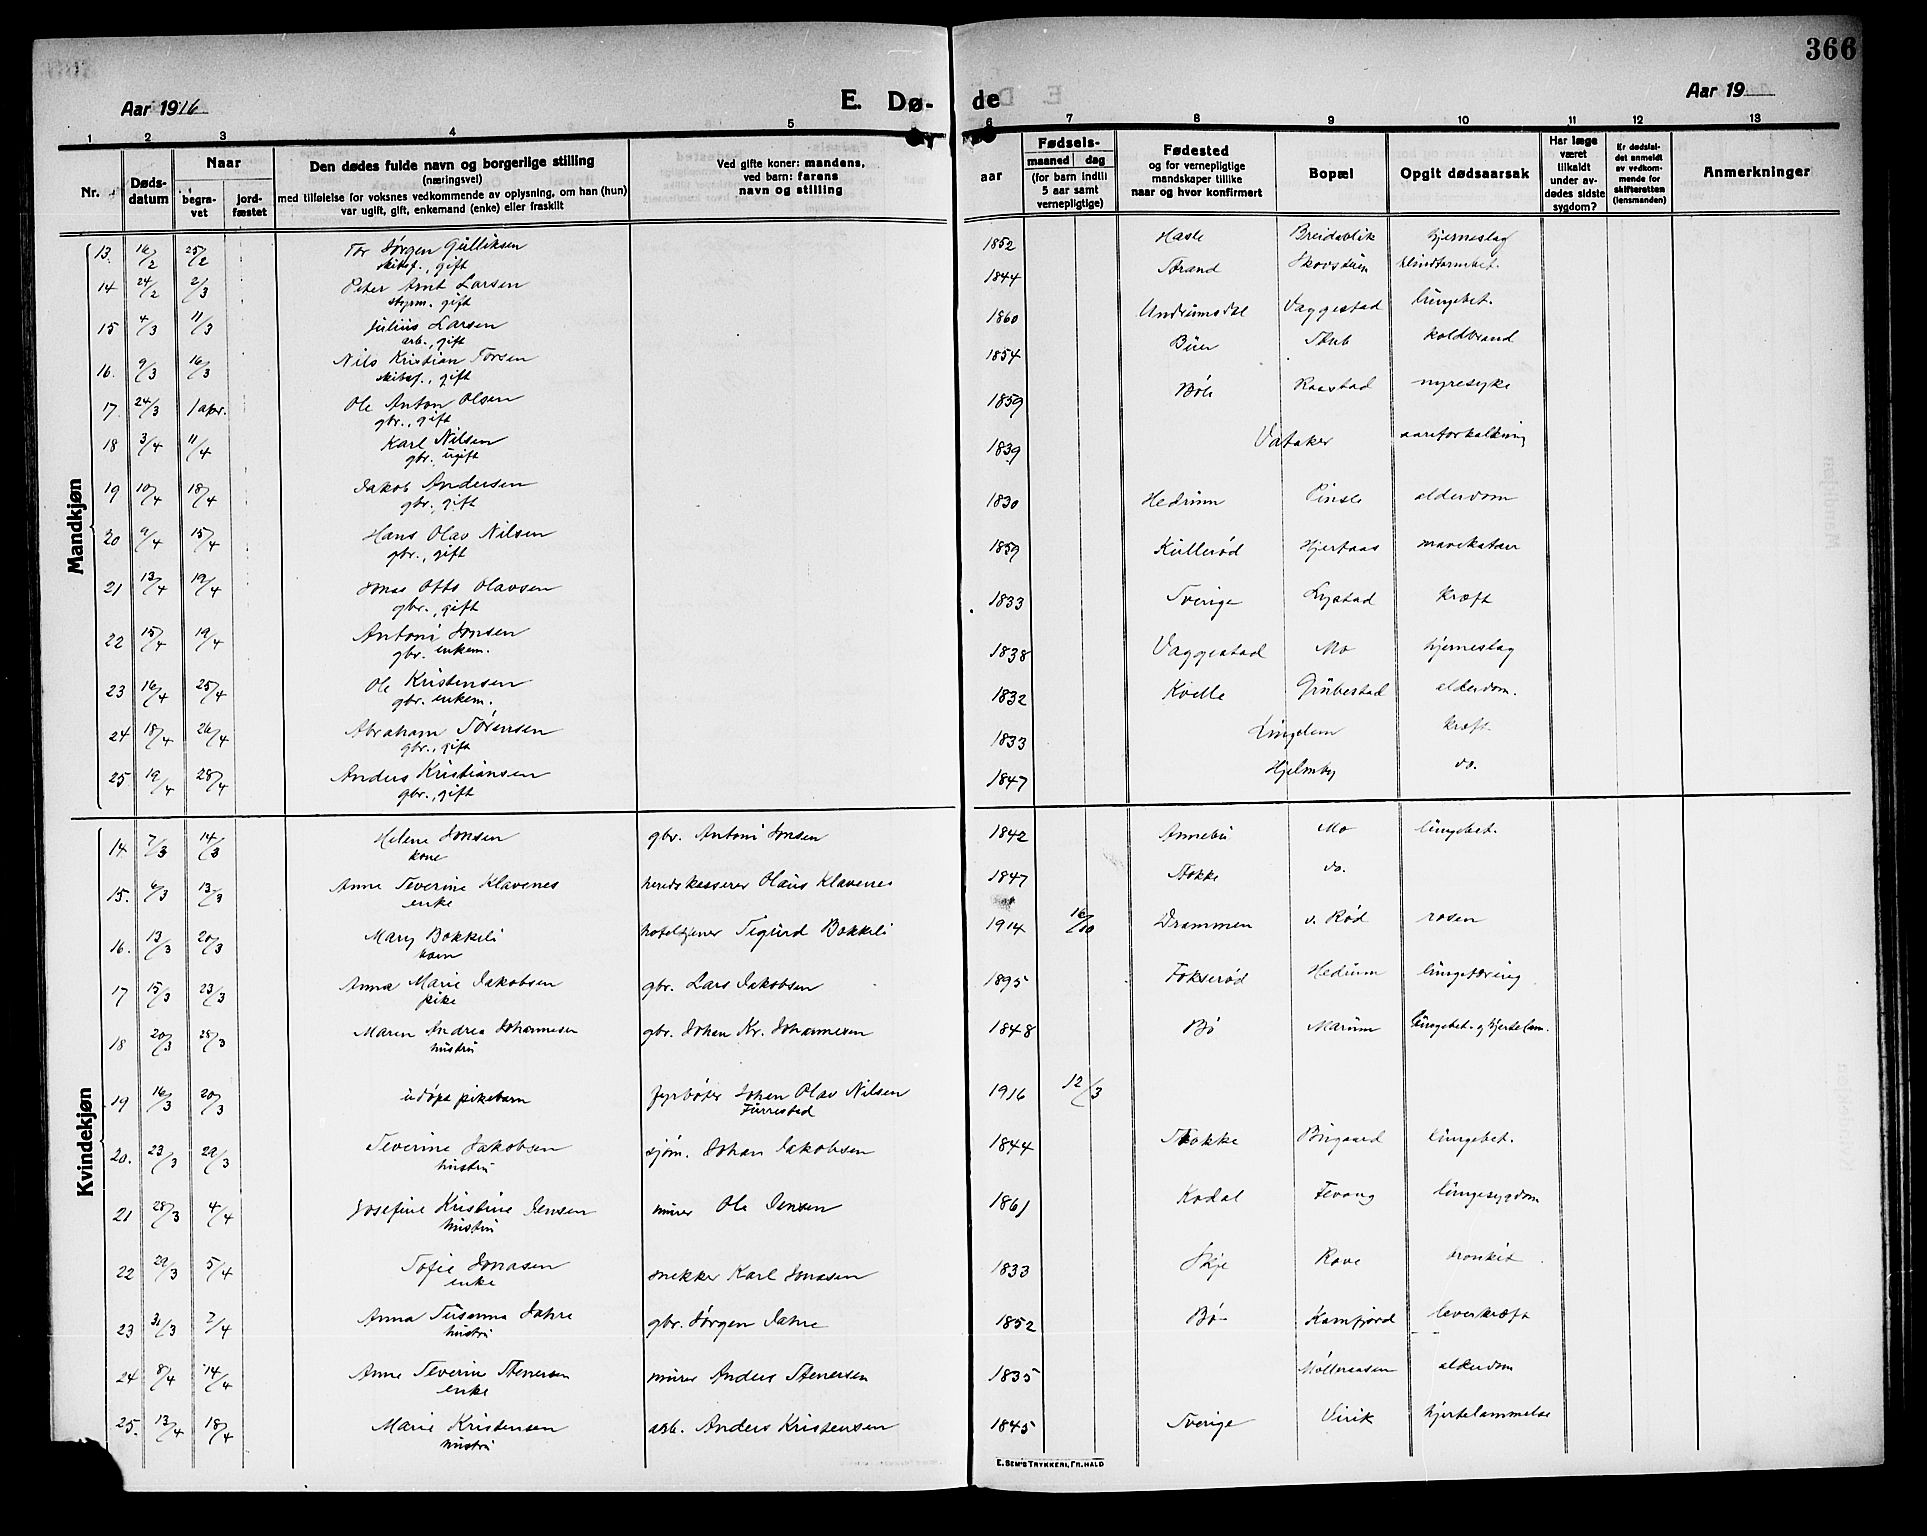 366
Aar 1916
E. Dø-
de
Aar 19
1 2 3 4 5 6 7 8 9 10 11 12 13
Nr.
Døds-
datum
Naar
begra-
vet
jord-
fæstet
Den dødes fulde navn og borgerlige stilling
(næringsvei)
med tilføielse for voksnes vedkommende av oplysning, om han (hun)
var ugift, gift, enkemand (enke) eller fraskilt
Ved gifte koner: mandens,
ved barn: farens
navn og stilling
aar
Fødsels-
maaned dag
(for barn indtil
5 aar samt
vernepligtige)
Fødested
og for vernepligtige
mandskaper tillike
naar og hvor konfirmert
Bopæl
Opgit dødsaarsak
Har læge
været
tilkaldt
under av-
dødes sidste
sygdom?
Er dødsfal-
det anmeldt
av vedkom-
mende for
skifteretten
(lensmanden)
Anmerkninger
Mandkjøn
13. 16/2 25/2 Tor Jørgen Gulliksen 1852 Hasle Breidablik hjerneslag
skibsf., gift
14 24/2 2/3 Peter Amt Larsen 1844 Strand Skovsteien blindtarmbet.
styrm. gift
15 4/3 11/3 Julius Larsen 1860 Undrumsdal Vaggestad lungebet.
arb., gift
16. 9/3 16/3 Nils Kristian Torsen 1854 Buer Stub koldbrand
skibsf., gift
17. 24/3 1 apr. Ole Anton Olsen 1859 Bøle Raastad nyresyke
gbr., gift
18 3/4 11/4 Karl Nilsen 1839 Vataker aareforkalkning
gbr. ugift
19 10/4 18/4 Jakob Andersen 1830 Hedrum Pinsle alderdom
gbr., gift
20 9/4 15/4 Hans Olav Nilsen 1859 Kullerød Hjertaas mavekatar
gbr., gift
21 13/4 19/4 Jonas Otto Olavsen 1833 Sverige Lystad kræft
gbr., gift
22 15/4 19/4 Antoni Jonsen 1838 Vaggestad Mo hjerneslag
gbr. enkem.
23 16/4 25/4 Ole Kristensen 1832 Kvelle Grubestad alderdom.
gbr. enkem.
24 18/4 26/4 Abraham Sørensen 1833 Lingelem kræft.
gbr., gift
25 19/4 28/4 Anders Kristiansen 1847 Hjelmby do.
gbr., gift
Kvindekjøn
14 7/3 14/3 Helene Jonsen gbr. Antoni Jonsen 1842 Annebu Mo lungebet.
kone
15. 6/3 13/3 Anne Severine Klavenes herredskasserer Olaus Klavenes 1847 Stokke do.
enke
16. 13/3 20/3 Mary Bakkeli hoteltjener Sigurd Bakkeli 1914 16/10 Drammen v. Rød rosen
barn
17 15/3 23/3 Anna Marie Jakobsen gbr. Lars Jakobsen 1895 Fokserød Hedrum lungetæring
pike
18 20/3 28/3 Maren Andrea Johannesen gbr. Johan Kr. Johannesen 1848 Bø Marum lungebet. og hjertelam.
hustru
19 16/3 20/3 udøpt pikebarn fyrbøter Johan Olav Nilsen 1916 12/3
Furrestad
20. 23/3 29/3 Severine Jakobsen sjøm. Johan Jakobsen 1844 Stokke Bugaard lungebet.
hustru
21 28/3 4/4 Josefine Kristine Jensen murer Ole Jensen 1861 Kodal Fevang lungesygdom
hustru
22 29/3 5/4 Sofie Jonasen snekker Karl Jonasen 1833 Skje Rove bronkit
enke
23 31/3 7/4 Anna Susanna Jahre gbr. Jørgen Jahre 1852 Bø Kamfjord leverkræft
hustru
24 8/4 14/4 Anne Severin Stenersen murer Anders Stenersen 1835 Møllersaasen alderdom
enke
25. 13/4 18/4 Marie Kristensen arb. Anders Kristensen 1845 Sverige Virik hjertelammelse
hustru
E. SEM'S TRYKKERI, FR.HALD